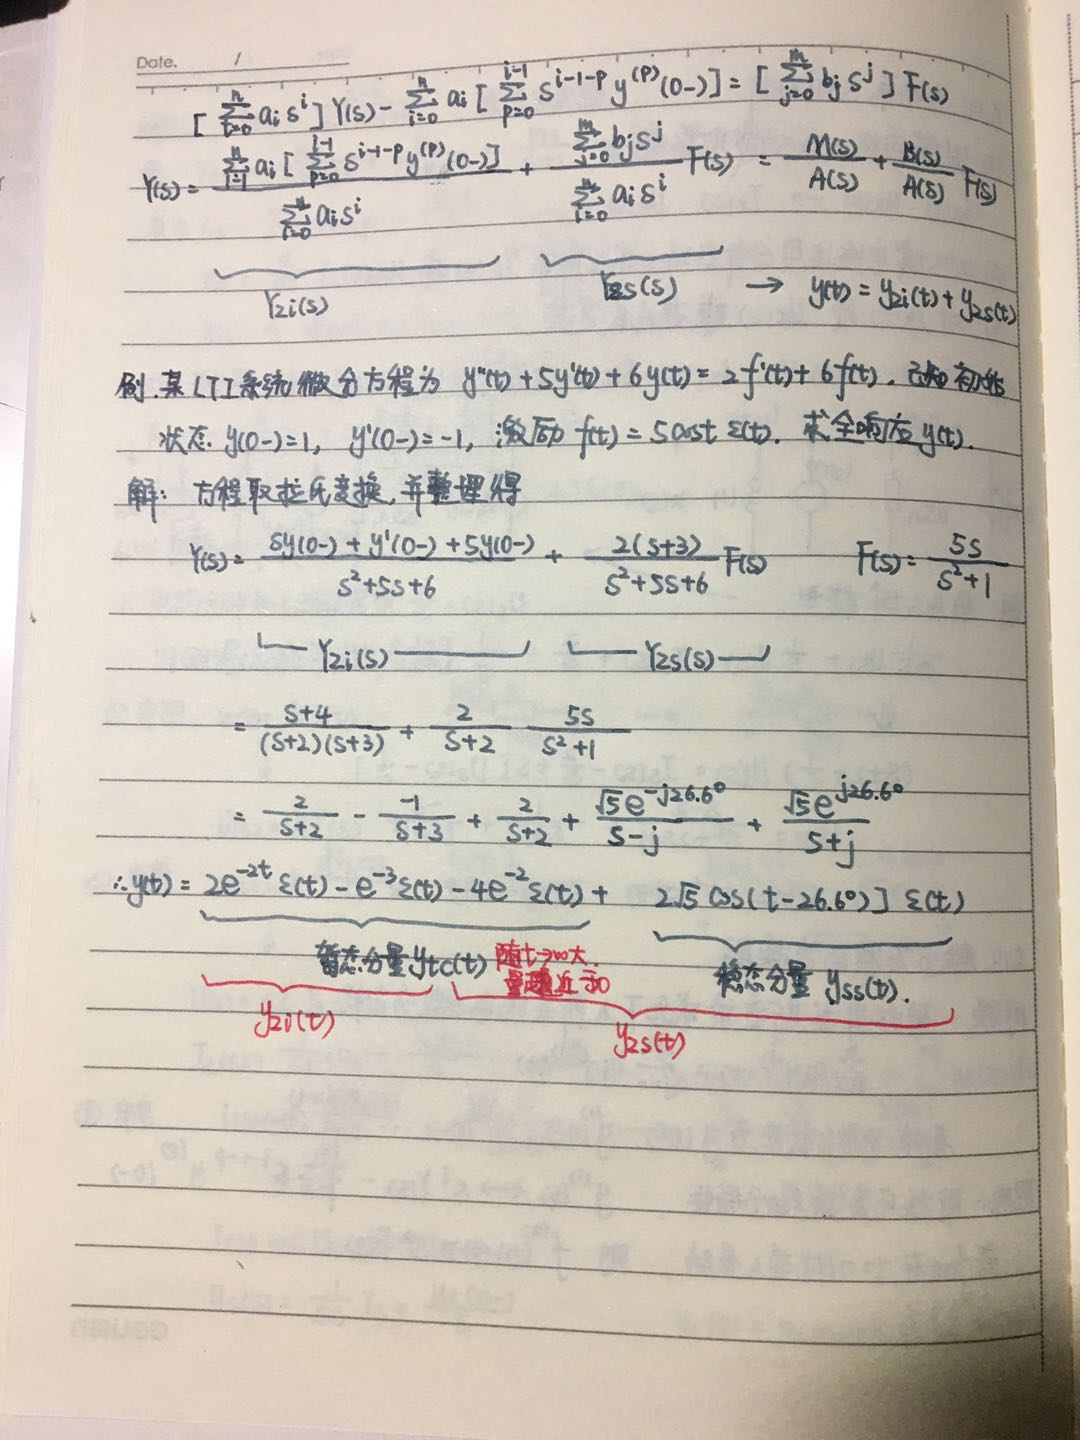 Date. /
[ Σ_{i=0}^{n} a_i s^i ] Y(s) - Σ_{i=0}^{n} a_i [ Σ_{p=0}^{i-1} s^{i-1-p} y^{(p)}(0-) ] = [ Σ_{j=0}^{m} b_j s^j ] F(s)
Y(s) = \frac{Σ_{i=1}^{n} a_i [ Σ_{p=0}^{i-1} s^{i-1-p} y^{(p)}(0-) ]}{Σ_{i=0}^{n} a_i s^i} + \frac{Σ_{j=0}^{m} b_j s^j}{Σ_{i=0}^{n} a_i s^i} F(s) = \frac{M(s)}{A(s)} + \frac{B(s)}{A(s)} F(s)
Yzi(s) Yzs(s) → y(t) = yzi(t) + yzs(t)
例. 某LTI系统微分方程为 y''(t) + 5y'(t) + 6y(t) = 2f'(t) + 6f(t). 已知初始
状态 y(0-)=1, y'(0-)=-1, 激励 f(t) = 5cost ε(t). 求全响应 y(t).
解: 方程取拉氏变换, 并整理得
Y(s) = \frac{sy(0-) + y'(0-) + 5y(0-)}{s²+5s+6} + \frac{2(s+3)}{s²+5s+6} F(s) F(s) = \frac{5s}{s²+1}
Yzi(s) Yzs(s)
= \frac{s+4}{(s+2)(s+3)} + \frac{2}{s+2} \frac{5s}{s²+1}
= \frac{2}{s+2} - \frac{-1}{s+3} + \frac{2}{s+2} + \frac{√5e^{-j26.6°}}{s-j} + \frac{√5e^{j26.6°}}{s+j}
∴ y(t) = 2e^{-2t} ε(t) - e^{-3} ε(t) - 4e^{-2} ε(t) + 2√5 cos(t-26.6°)] ε(t)
暂态分量 ytc(t) 随t→∞大. 稳态分量 yss(t).
量趋近于0
yzi(t) yzs(t)